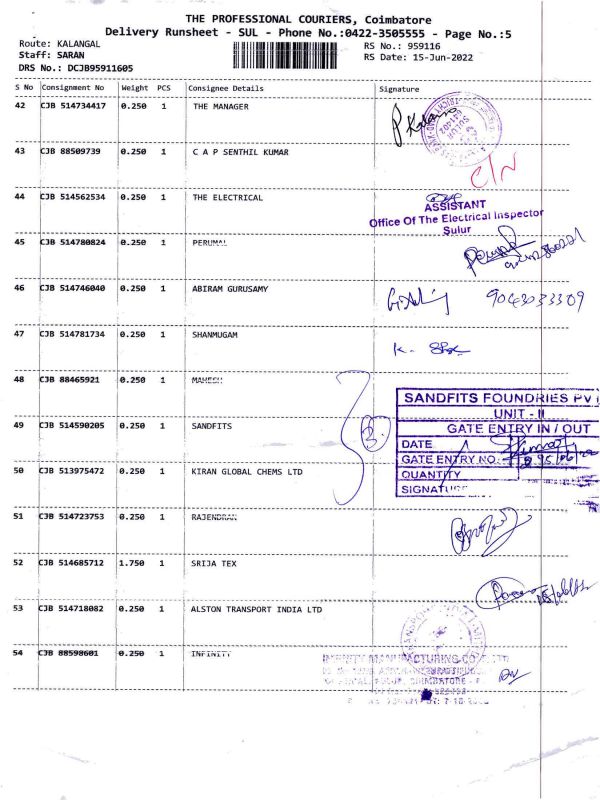 THE PROFESSIONAL COURIERS, Coimbatore
Delivery Runsheet - SUL - Phone No.:0422-3505555 - Page No.:5
Route: KALANGAL
RS No.: 959116
Staff: SARAN
RS Date: 15-Jun-2022
DRS No.: DCJB95911605
S No Consignment No Weight PCS Consignee Details Signature
42 CJB 514734417 0.250 1 THE MANAGER
43 CJB 88509739 0.250 1 C A P SENTHIL KUMAR
C/N
44 CJB 514562534 0.250 1 THE ELECTRICAL
ASSISTANT
Office Of The Electrical Inspector
Sulur
45 CJB 514780824 0.250 1 PERUMAL
46 CJB 514746040 0.250 1 ABIRAM GURUSAMY
9043033309
47 CJB 514781734 0.250 1 SHANMUGAM
K.
48 CJB 88465921 0.250 1 MAHESH
SANDFITS FOUNDRIES PV
UNIT - II
49 CJB 514590205 0.250 1 SANDFITS
3
GATE ENTRY IN / OUT
DATE
GATE ENTRY NO.
50 CJB 513975472 0.250 1 KIRAN GLOBAL CHEMS LTD
QUANTITY
SIGNATURE
51 CJB 514723753 0.250 1 RAJENDRAN
52 CJB 514685712 1.750 1 SRIJA TEX
53 CJB 514718082 0.250 1 ALSTON TRANSPORT INDIA LTD
54 CJB 88598601 0.250 1 INFINITY
INFINITY MANUFACTURING CO